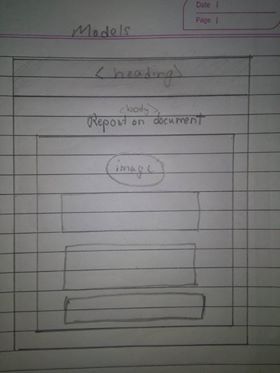 Date :
Page :
Models
<heading>
<body>
Report on document
image